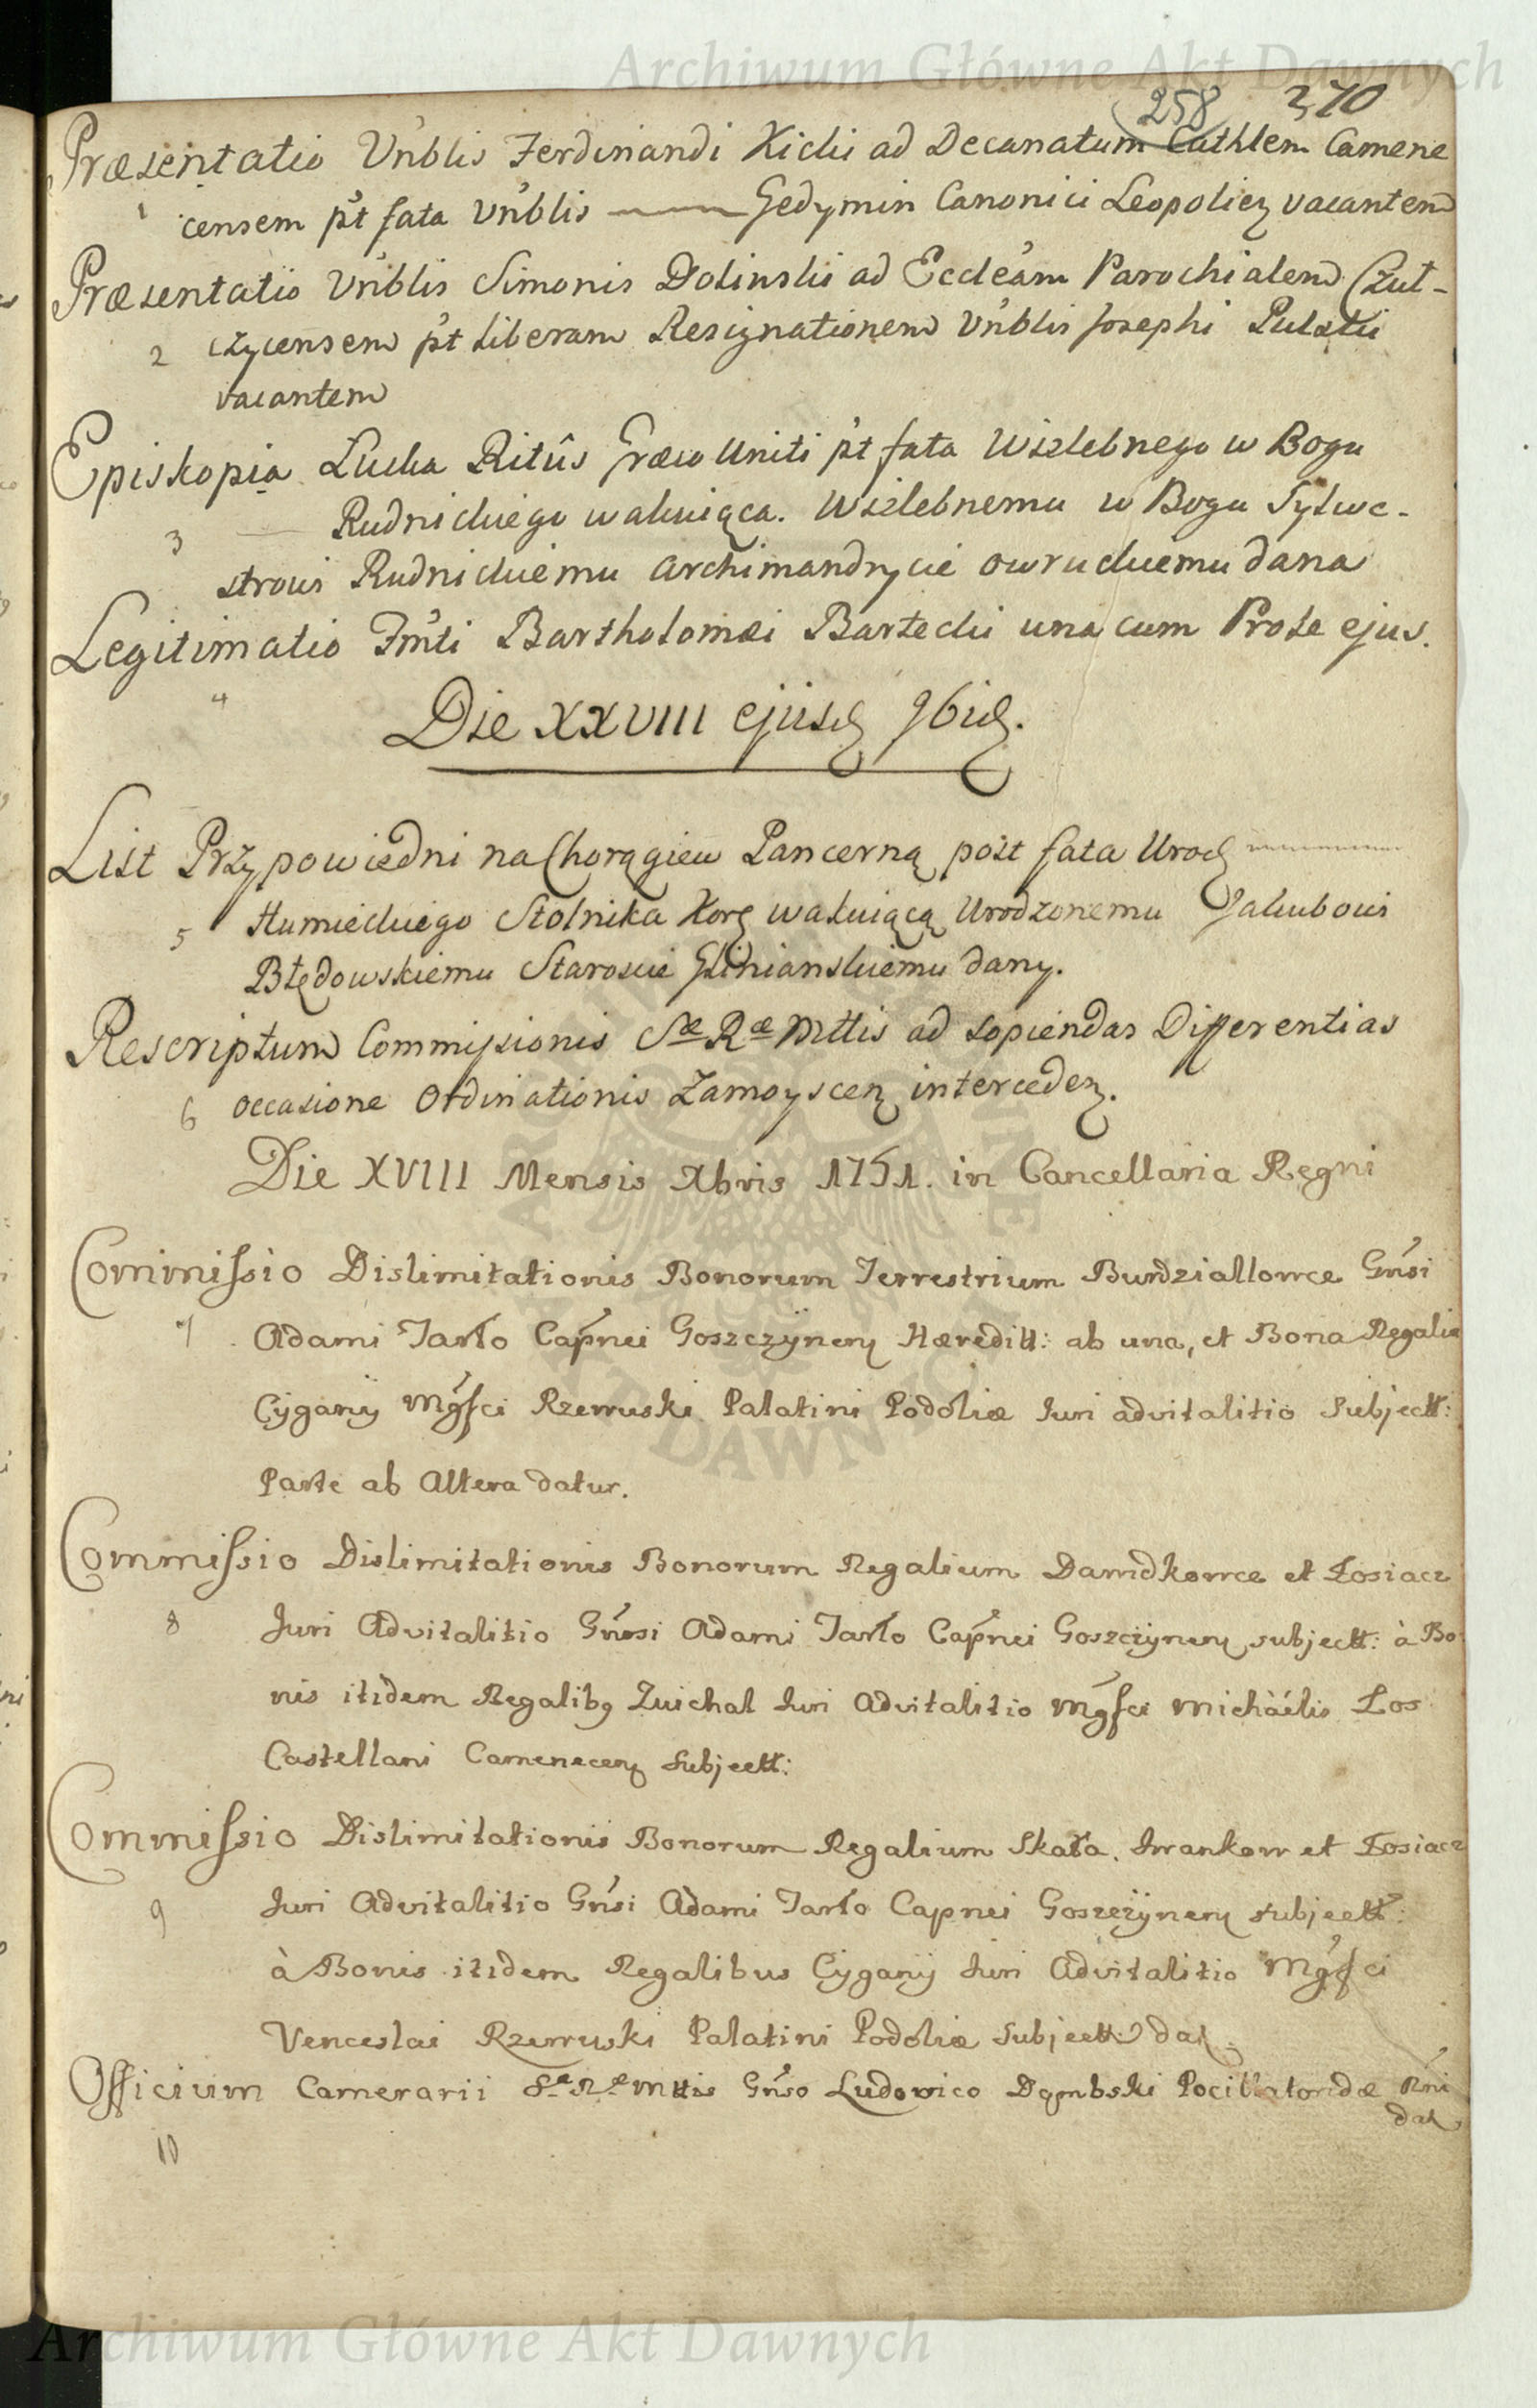 Archiwum Główne Akt Dawnych
258 370
Præsentatio Vnblis Ferdinandi Kicki ad Decanatum Cathlem Camene
1 censem pt fata Vnblis Gedymin Canonici Leopolien vacantem
Præsentatio Vnblis Simonis Dolinski ad Eccleam Parochialem Czul-
2 czycensem pt liberam Resignationem Vnblis Josephi Pulski
vacantem
Episkopia Lucka Ritûs Græco Uniti pt fata Wielebnego w Bogu
3 Rudnickiego wakuiąca. Wielebnemu w Bogu Sylwe-
strowi Rudnickiemu Archimandrycie owruckiemu dana
Legitimatio Fmti Bartholomæi Bartecki una cum Prole ejus.
4
Die XXVIII ejusd 9bis.
List Przypowiedni na Chorągiew Pancerną post fata Urod
5 Humieckiego Stolnika Kor wakuiącą Urodzonemu Jakubowi
Błędowskiemu Staroscie Glinianskiemu dany.
Rescriptum Commissionis Sæ Ræ Mttis ad sopiendas Differentias
6 occasione Ordinationis Zamoyscen interceden.
Die XVIII Mensis Xbris 1751. in Cancellaria Regni
Commissio Dislimitationis Bonorum Terrestrium Burdziallowce Gnsi
7 Adami Tarło Capnei Goszczÿnen Hæreditt: ab una, et Bona Regalia
Cÿganÿ Mgfci Rzewuski Palatini Podoliæ Juri advitalitio Subjectt:
Parte ab Altera datur.
Commissio Dislimitationis Bonorum Regalium Dawidkowce et Łosiacz
8 Juri Advitalitio Gnosi Adami Tarło Capnei Goszczÿnen subjectt: à Bo
nis itidem Regalibg Zuichal Juri Advitalitio Mgfci Michaelis Łos
Castellani Camenecen Subjectt:
Commissio Dislimitationis Bonorum Regalium Skała, Iwankow et Łosiacz
9 Juri Advitalitio Gnsi Adami Tarło Capnei Goszczÿnen subjectt:
à Bonis itidem Regalibus Cÿganÿ Juri Advitalitio Mgfci
Venceslai Rzewuski Palatini Podoliæ Subjectt: dat.
Officium Camerarii Sæ Ræ Mttis Gnso Ludovico Dąmbski Pocillatoridæ Rni
10 dat
Archiwum Główne Akt Dawnych